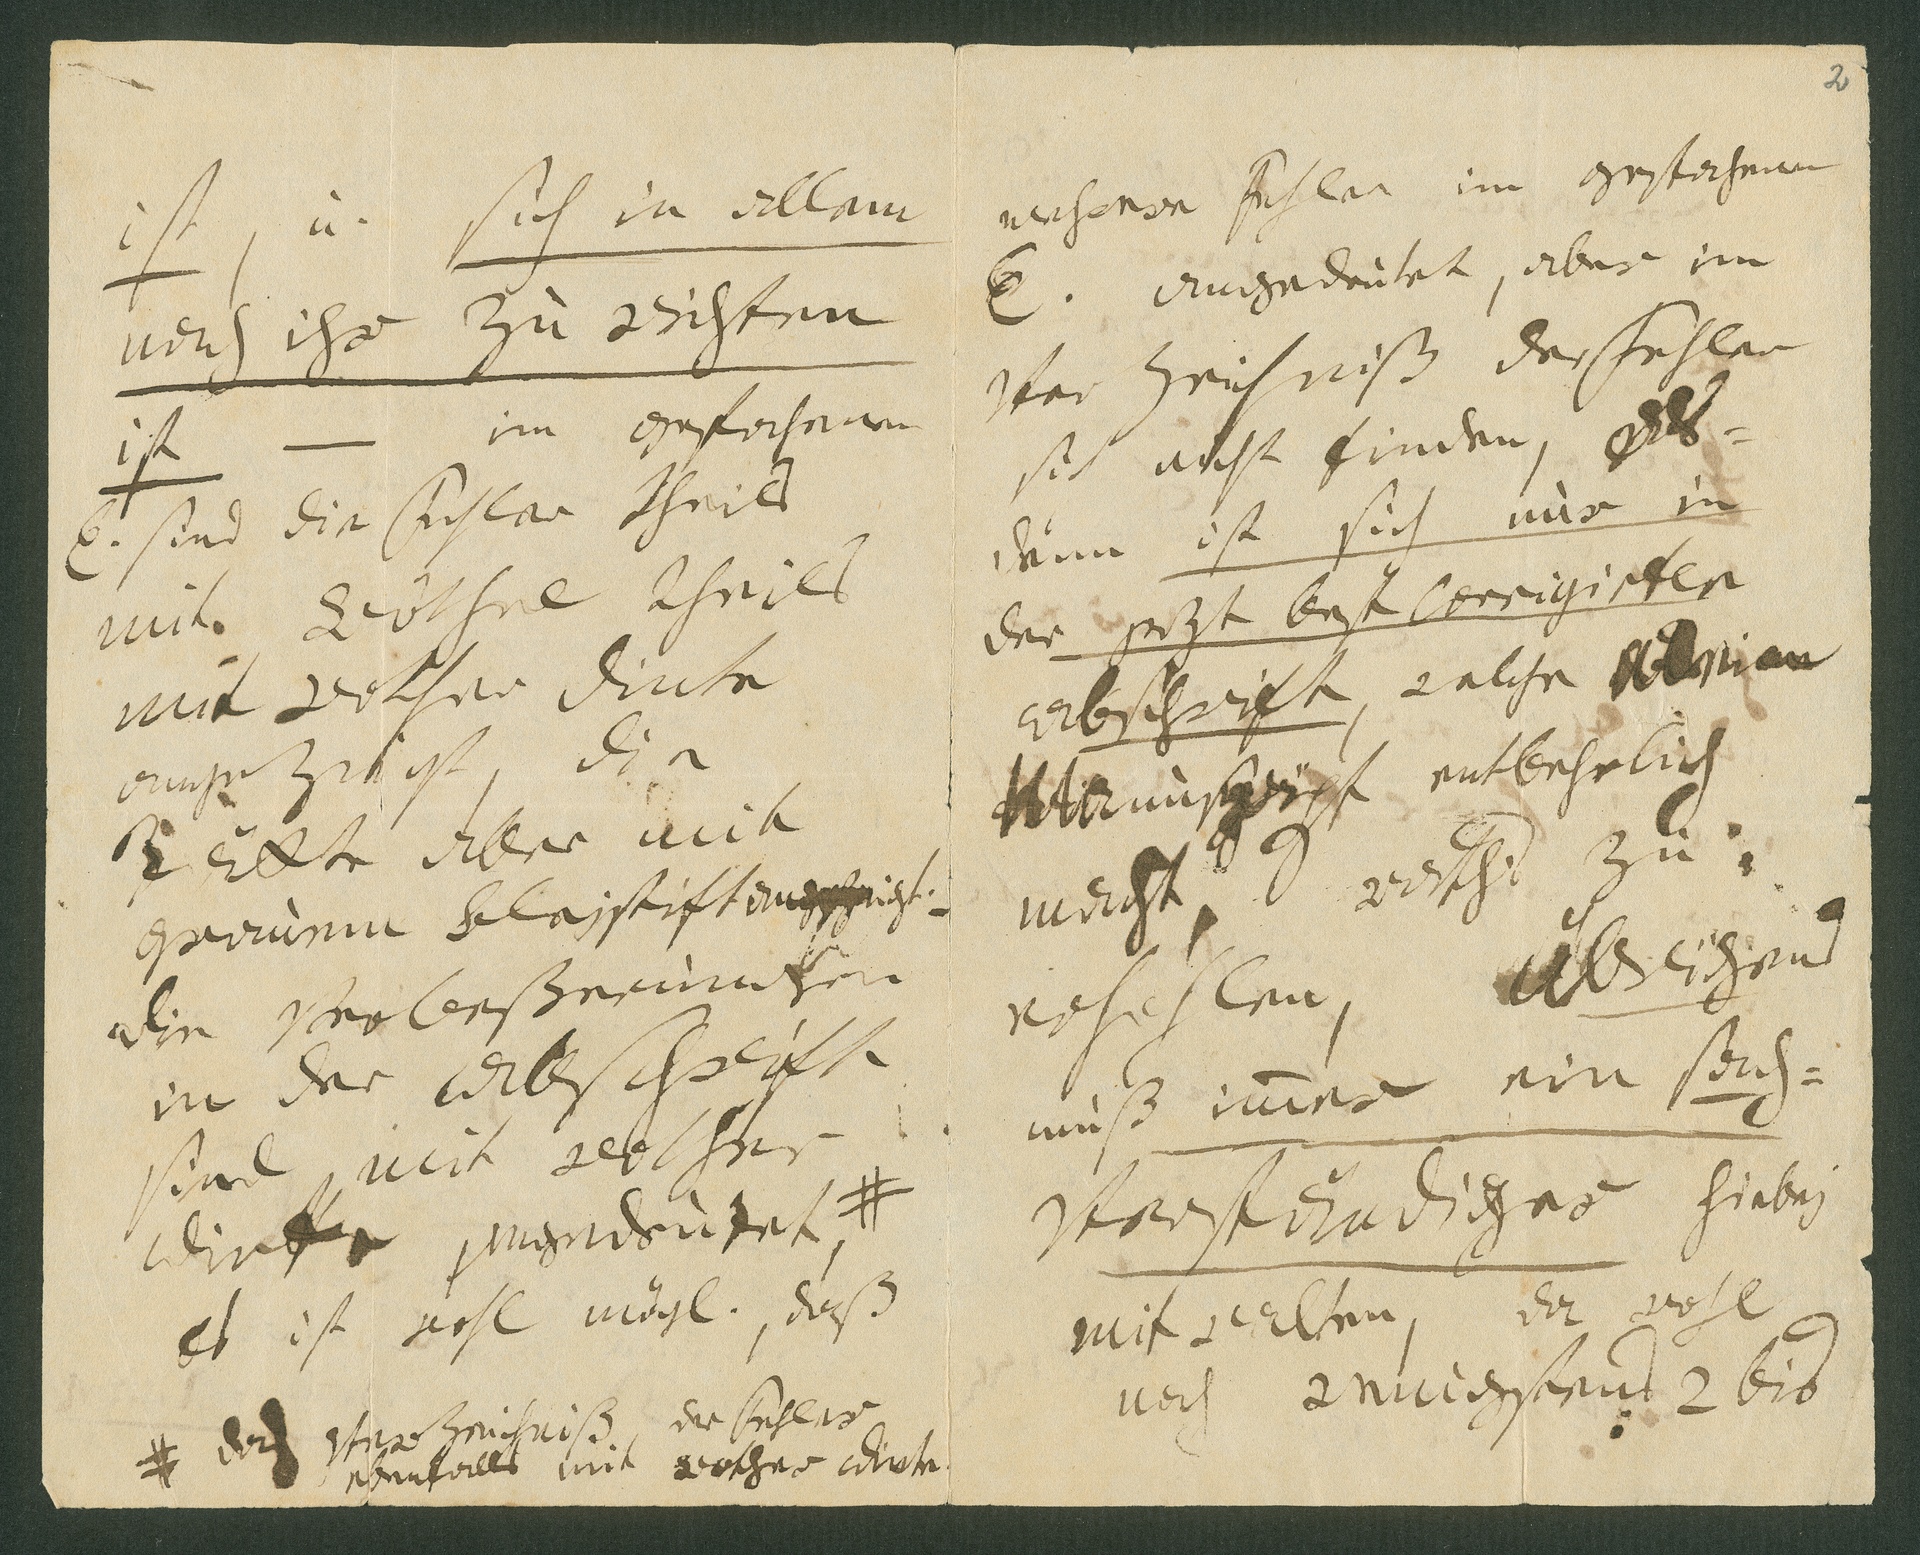 ist, u. sich in allem
nach ihr zu richten
ist — im gestochenen
E. sind die Fehler theils
mit Röthel theils
mit rother Dinte
angezeigt, die
aber mit
grauem Bleystift angezeigt.
die Verbeßerungen
in der Abschrift
sind mit rother
Dinte angedeutet, #
es ist wohl mögl., daß
# das Verzeichniß der Fehler
ebenfalls mit rother Dinte.
2
mehrere Fehler im gestochenen
E. angedeutet, aber im
Verzeichniß der Fehler
sich nicht finden, als=
dann ist sich nur in
der jetzt best Corrigirten
Abschrift, welche mein
Manuscript entbehrlich
macht, raths zu
erhohlen, Übrigens
muß im̅er ein Sach=
Verständiger hiebey
mit walten, da wohl
noch wenigstens 2 bis